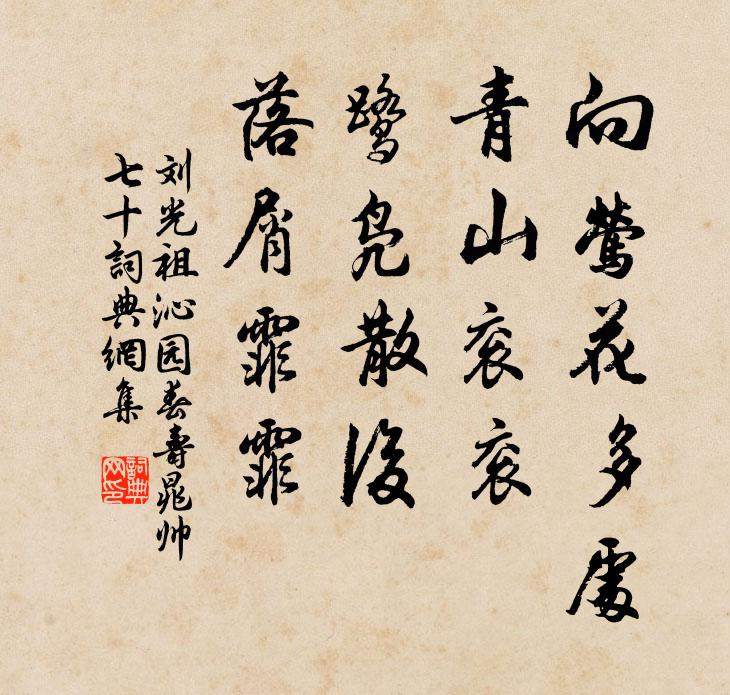 向莺花多處
青山衮衮
鹭凫散後
落屑霏霏
刘光祖沁园春寿晁帅
七十詞典網集
詞典网印